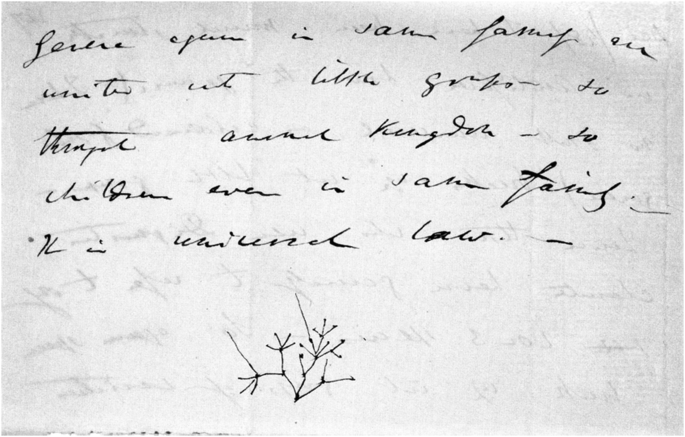 Genera again in same family are
united into little groups — so
through animal Kingdom — so
children even in same family. —
It is universal law. —